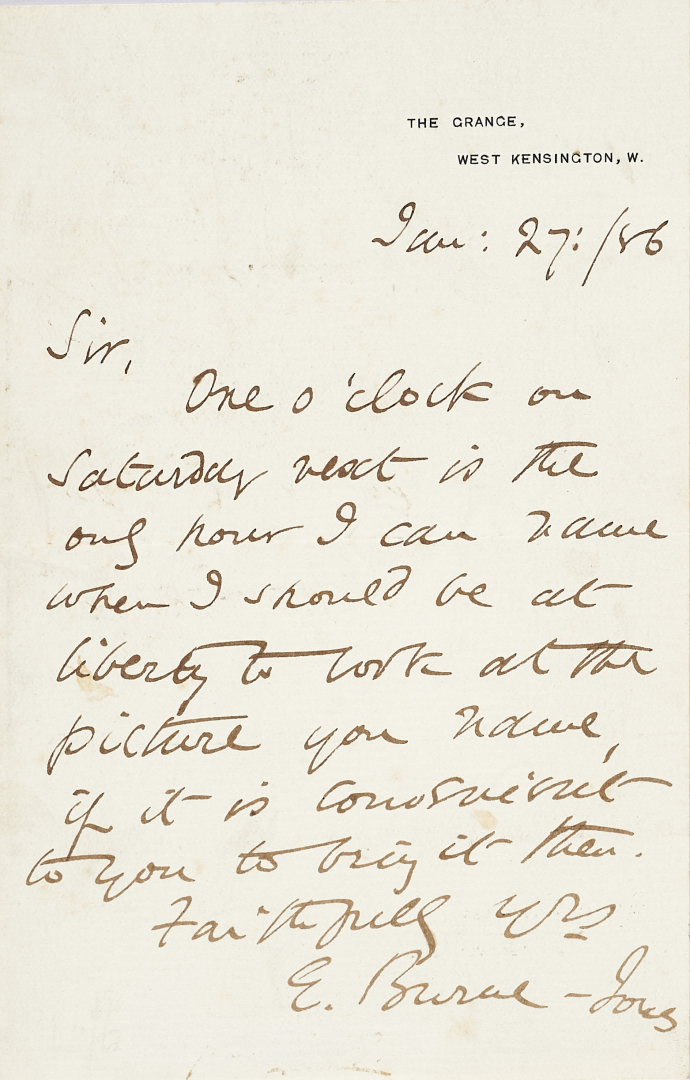 THE GRANGE,
WEST KENSINGTON, W.
Jan: 27: /86
Sir,
One o'clock on
Saturday next is the
only hour I can name
when I should be at
liberty to look at the
picture you name,
if it is convenient
to you to bring it then.
Faithfully yrs
E. Burne-Jones